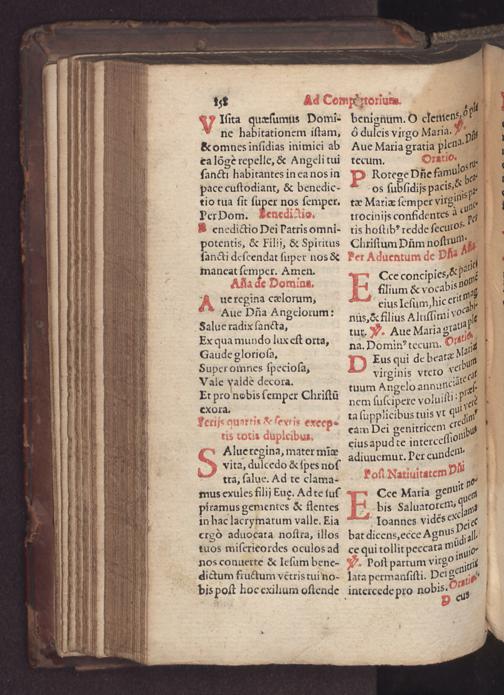 158 Ad Completorium.
VIsita quæsumus Domi-
ne habitationem istam,
& omnes insidias inimici ab
ea lõgè repelle, & Angeli tui
sancti habitantes in ea nos in
pace custodiant, & benedic-
tio tua sit super nos semper.
Per Dom. Benedictio.
Benedictio Dei Patris omni-
potentis, & Filij, & Spiritus
sancti descendat super nos &
maneat semper. Amen.
Aña de Domina.
Aue regina cælorum,
Aue Dña Angelorum:
Salue radix sancta,
Ex qua mundo lux est orta,
Gaude gloriosa,
Super omnes speciosa,
Vale valdè decora.
Et pro nobis semper Christũ
exora.
Ferijs quartis & sextis excep-
tis totis duplicibus.
SAlue regina, mater miæ
vita, dulcedo & spes nos
tra, salue. Ad te clama-
mus exules filij Euę. Ad te sus
piramus gementes & flentes
in hac lacrymatum valle. Eia
ergò aduocata nostra, illos
tuos misericordes oculos ad
nos conuerte & Iesum bene-
dictum fructum vẽtris tui no-
bis post hoc exilium ostende
benignum. O clemens, ô pia
ô dulcis virgo Maria. ℣.
Aue Maria gratia plena. Dñs
tecum. Oratio.
PRotege Dñe famulos tu-
os subsidijs pacis, & bea-
tæ Mariæ semper virginis pa-
trocinijs confidentes à cunc-
tis hostibꝰ redde securos. Per
Christum Dñm nostrum.
Per Aduentum de Dña Aña
ECce concipies, & paries
filium & vocabis nomẽ
eius Iesum, hic erit mag
nus, & filius Altissimi vocabi-
tur. ℣. Aue Maria gratia ple
na. Dominꝰ tecum. Oratio.
DEus qui de beatæ Mariæ
virginis vtero verbum
tuum Angelo annunciãte car
nem suscipere voluisti: præs-
ta supplicibus tuis vt qui verè
eam Dei genitricem credimꝰ
eius apud te intercessionibus
adiuuemur. Per eundem.
Post Natiuitatem Dñi
ECce Maria genuit no-
bis Saluatotem, quem
Ioannes vidẽs exclama
bat dicens, ecce Agnus Dei ec
ce qui tollit peccata mũdi all.
℣. Post partum virgo inuio-
lata permansisti. Dei genitrix
intercede pro nobis. Oratio.
D eus